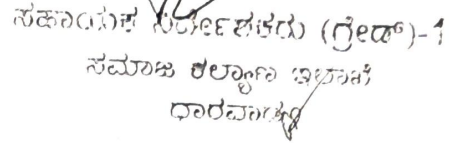 ಸಹಾಯಕ ನಿರ್ದೇಶಕರು (ಗ್ರೇಡ್)-1
ಸಮಾಜ ಕಲ್ಯಾಣ ಇಲಾಖೆ
ಧಾರವಾಡ